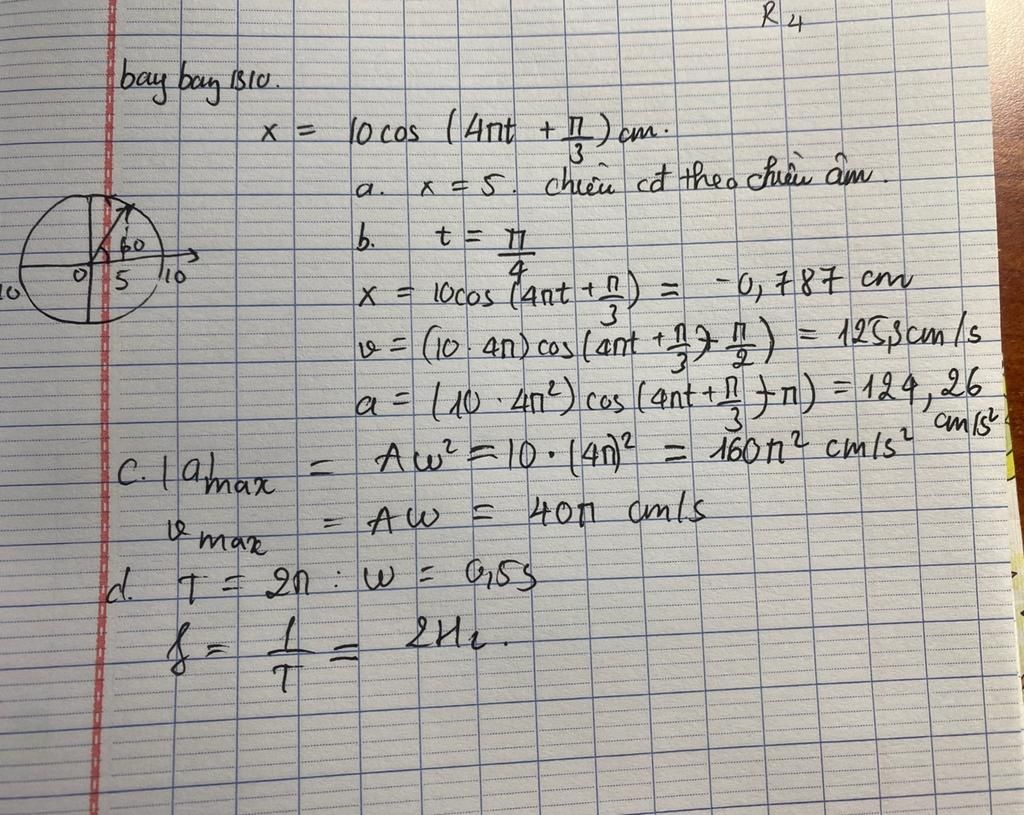 R4
bay bay B10.
x = 10cos (4πt + π/3) cm.
a. x = 5. chiều cđ theo chiều âm.
60
0 5 10
10
b. t = π/4
x = 10cos (4πt + π/3) = -0,787 cm
v = (10 . 4π) cos (4πt + π/3 + π/2) = 125,3 cm/s
a = (10 . 4π²) cos (4πt + π/3 + π) = 124,26
cm/s²
c. |a|max = Aω² = 10 . (4π)² = 160π² cm/s²
vmax = Aω = 40π cm/s
d. T = 2π : ω = 0,5s
f = 1/T = 2Hz.